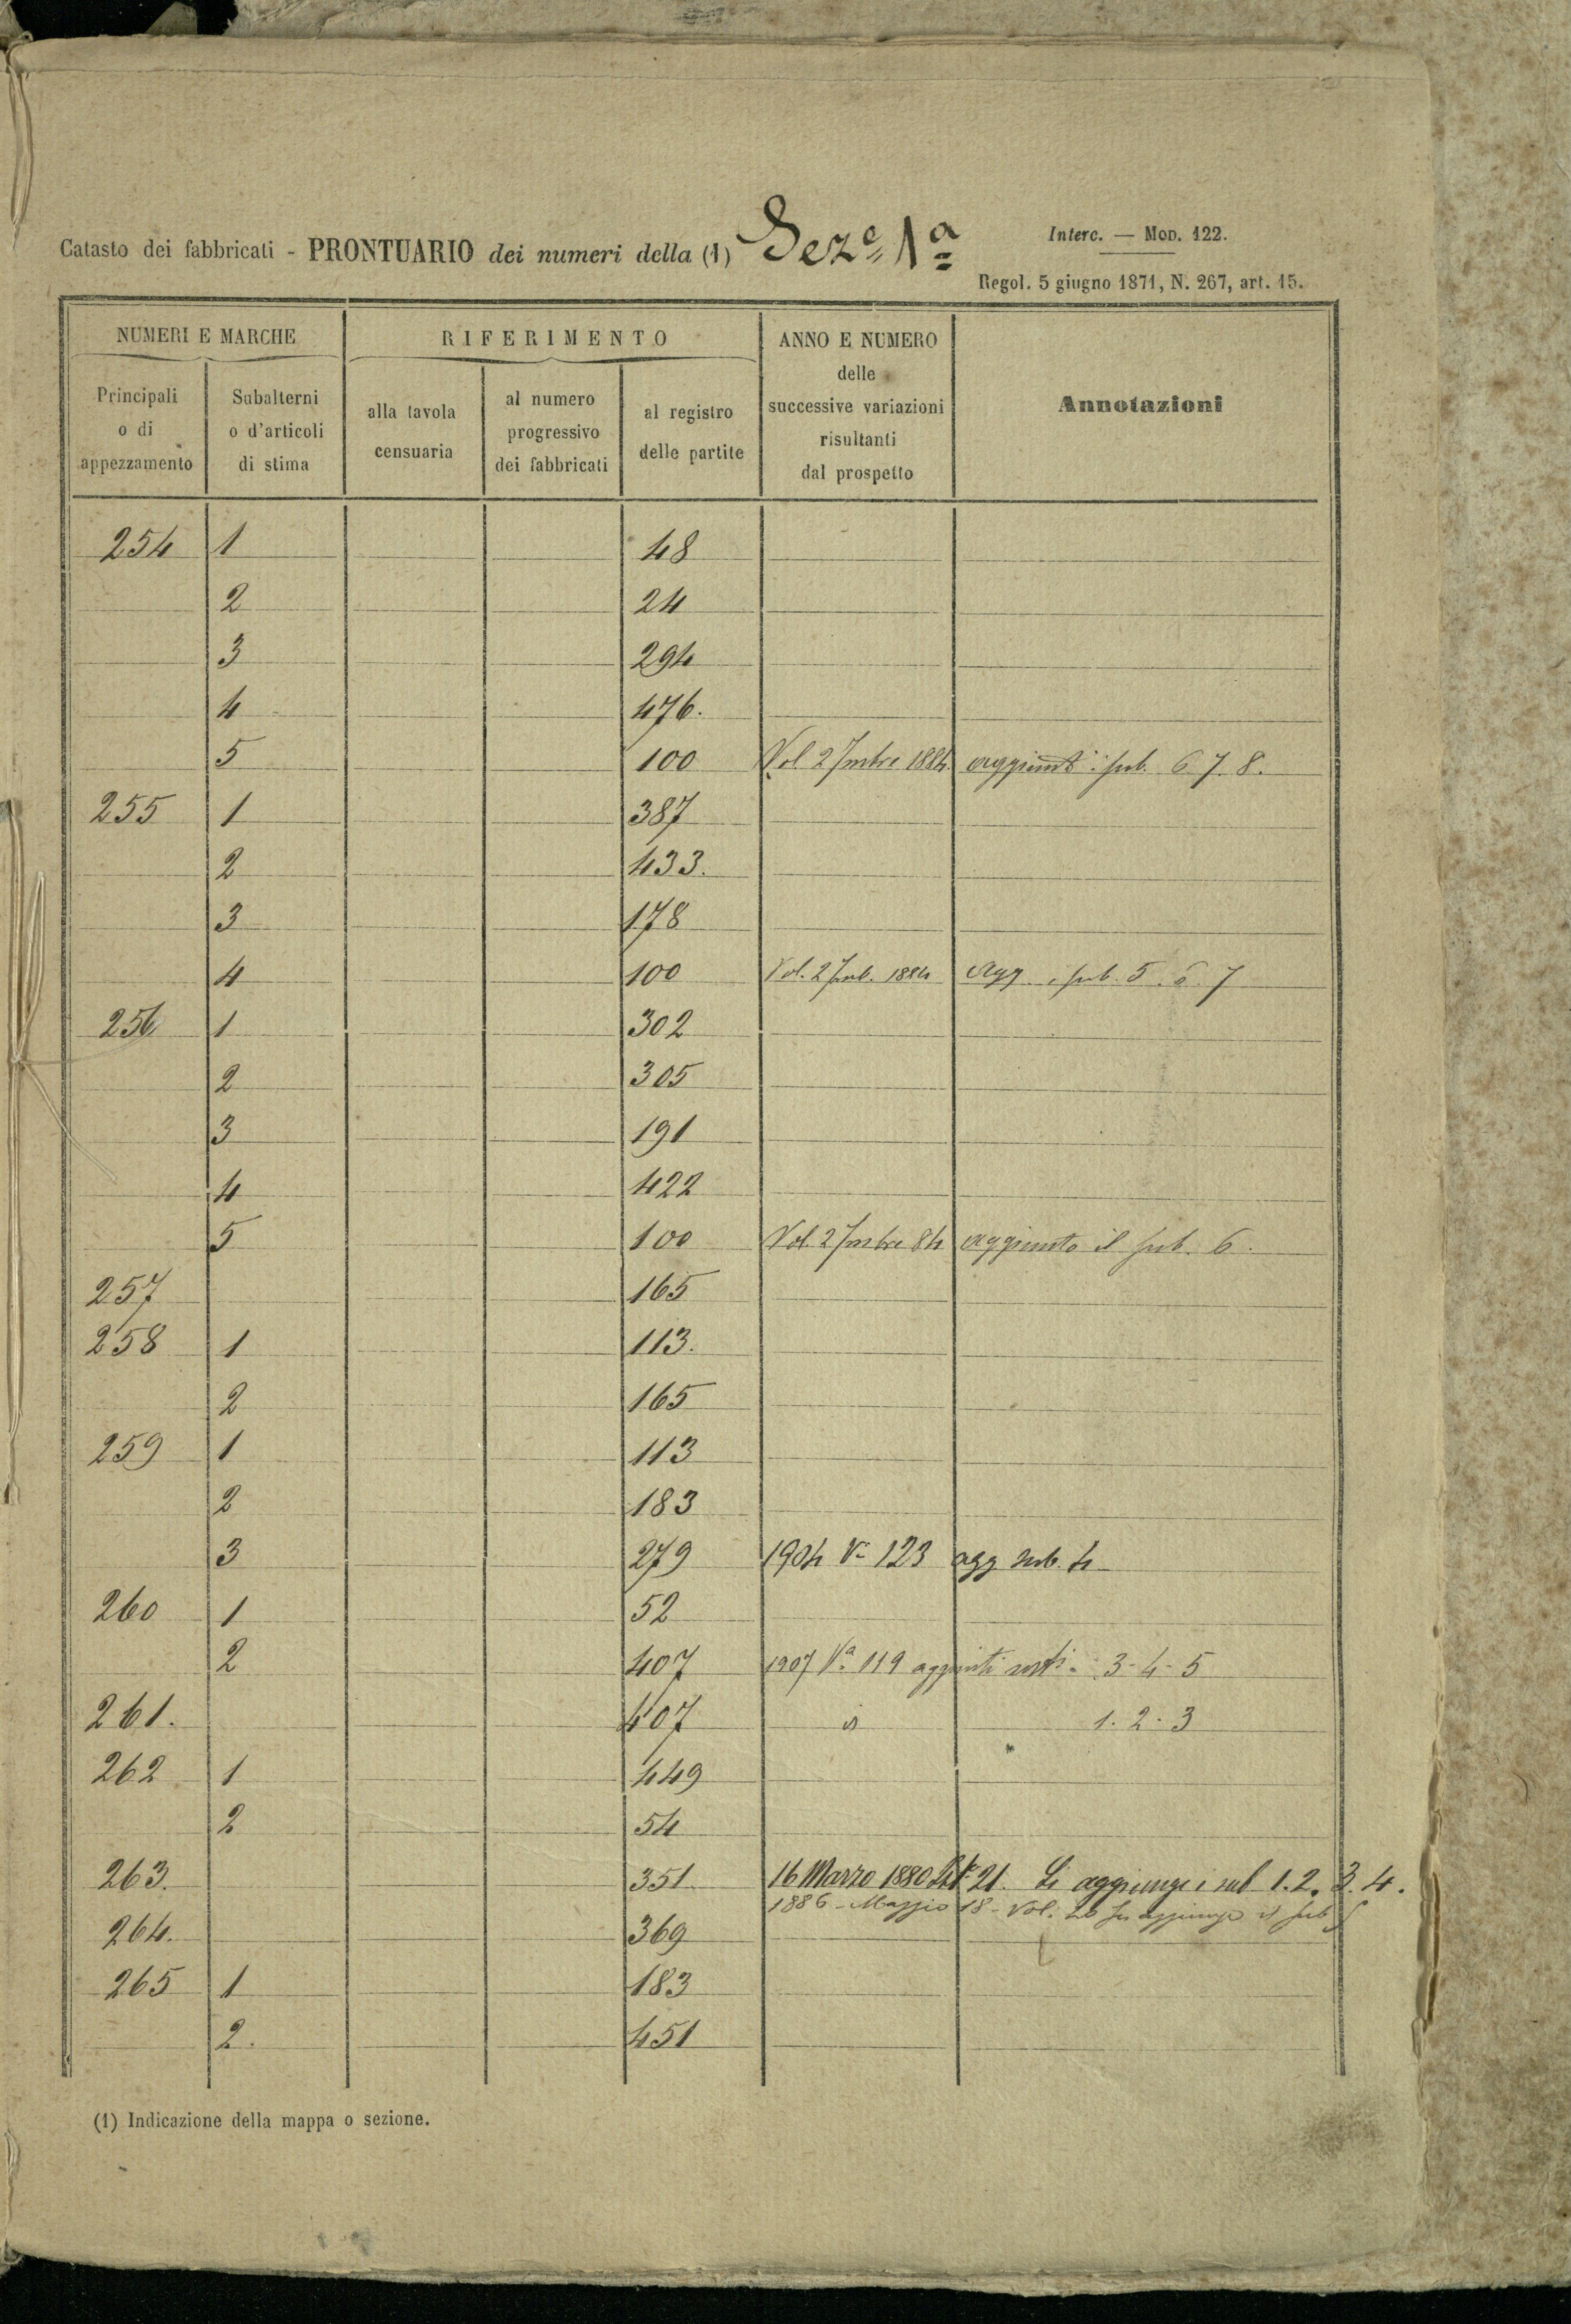 Catasto dei fabbricati - PRONTUARIO dei numeri della (1) Sez.e 1a
Interc. — Mod. 122.
Regol. 5 giugno 1871, N. 267, art. 15.
NUMERI E MARCHE
RIFERIMENTO
ANNO E NUMERO
delle
successive variazioni
risultanti
dal prospetto
Annotazioni
Principali
o di
appezzamento
Subalterni
o d'articoli
di stima
alla tavola
censuaria
al numero
progressivo
dei fabbricati
al registro
delle partite
254 1 48
2 24
3 294
4 476.
5 100 Vol. 2 7mbre 1884. aggiunti i sub. 6 7. 8.
255 1 387
2 433.
3 178
4 100 Vol. 2 1884 Agg i sub. 5. 6. 7
256 1 302
2 305
3 191
4 422
5 100 Vol. 2 7mbre 84 aggiunto il sub. 6.
257 165
258 1 113.
2 165
259 1 113
2 183
3 279 1904 Va 123 agg sub. 4
260 1 52
2 407 1907 Va 119 aggiunti 3-4-5
261. 407 1. 2. 3
262 1 449
2 54
263. 351. 16 Marzo 1880 21. Si aggiunge i sub 1. 2. 3. 4.
1886 - Maggio 18 - Vol. aggiunge il sub 5
264. 369
265 1 183
2. 451
(1) Indicazione della mappa o sezione.